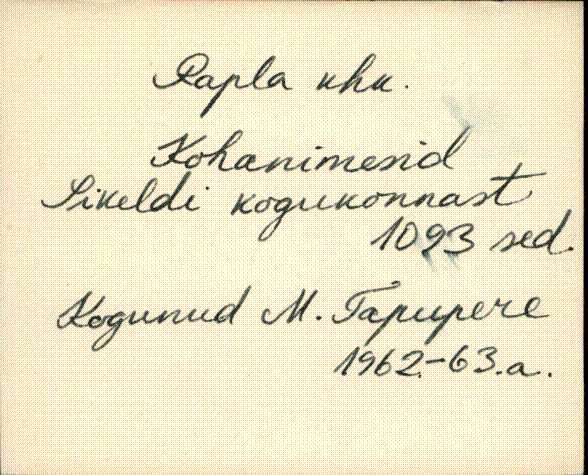 Rapla khk.
Kohanimesid
Sikeldi kogukonnast
1093 sed.
Kogunud M. Tapupere
1962.-63.a.